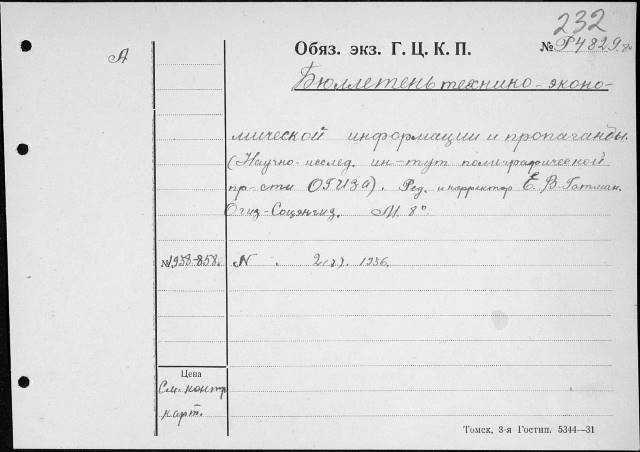 232
Обяз. экз. Г. Ц. К. П.
№ Р4829
А
Бюллетень технико-эконо-
мической информации и пропаганды.
(Научно-исслед. ин-тут полиграфической
пр-сти ОГИЗа). Ред. и корректор Е. В. Гатман.
Огиз-Соцэкгиз. М. 8°
№ 1938-858. N . 2(3). 1936.
Цена
См. контр
карт.
Томск, 3-я Гостип. 5344—31